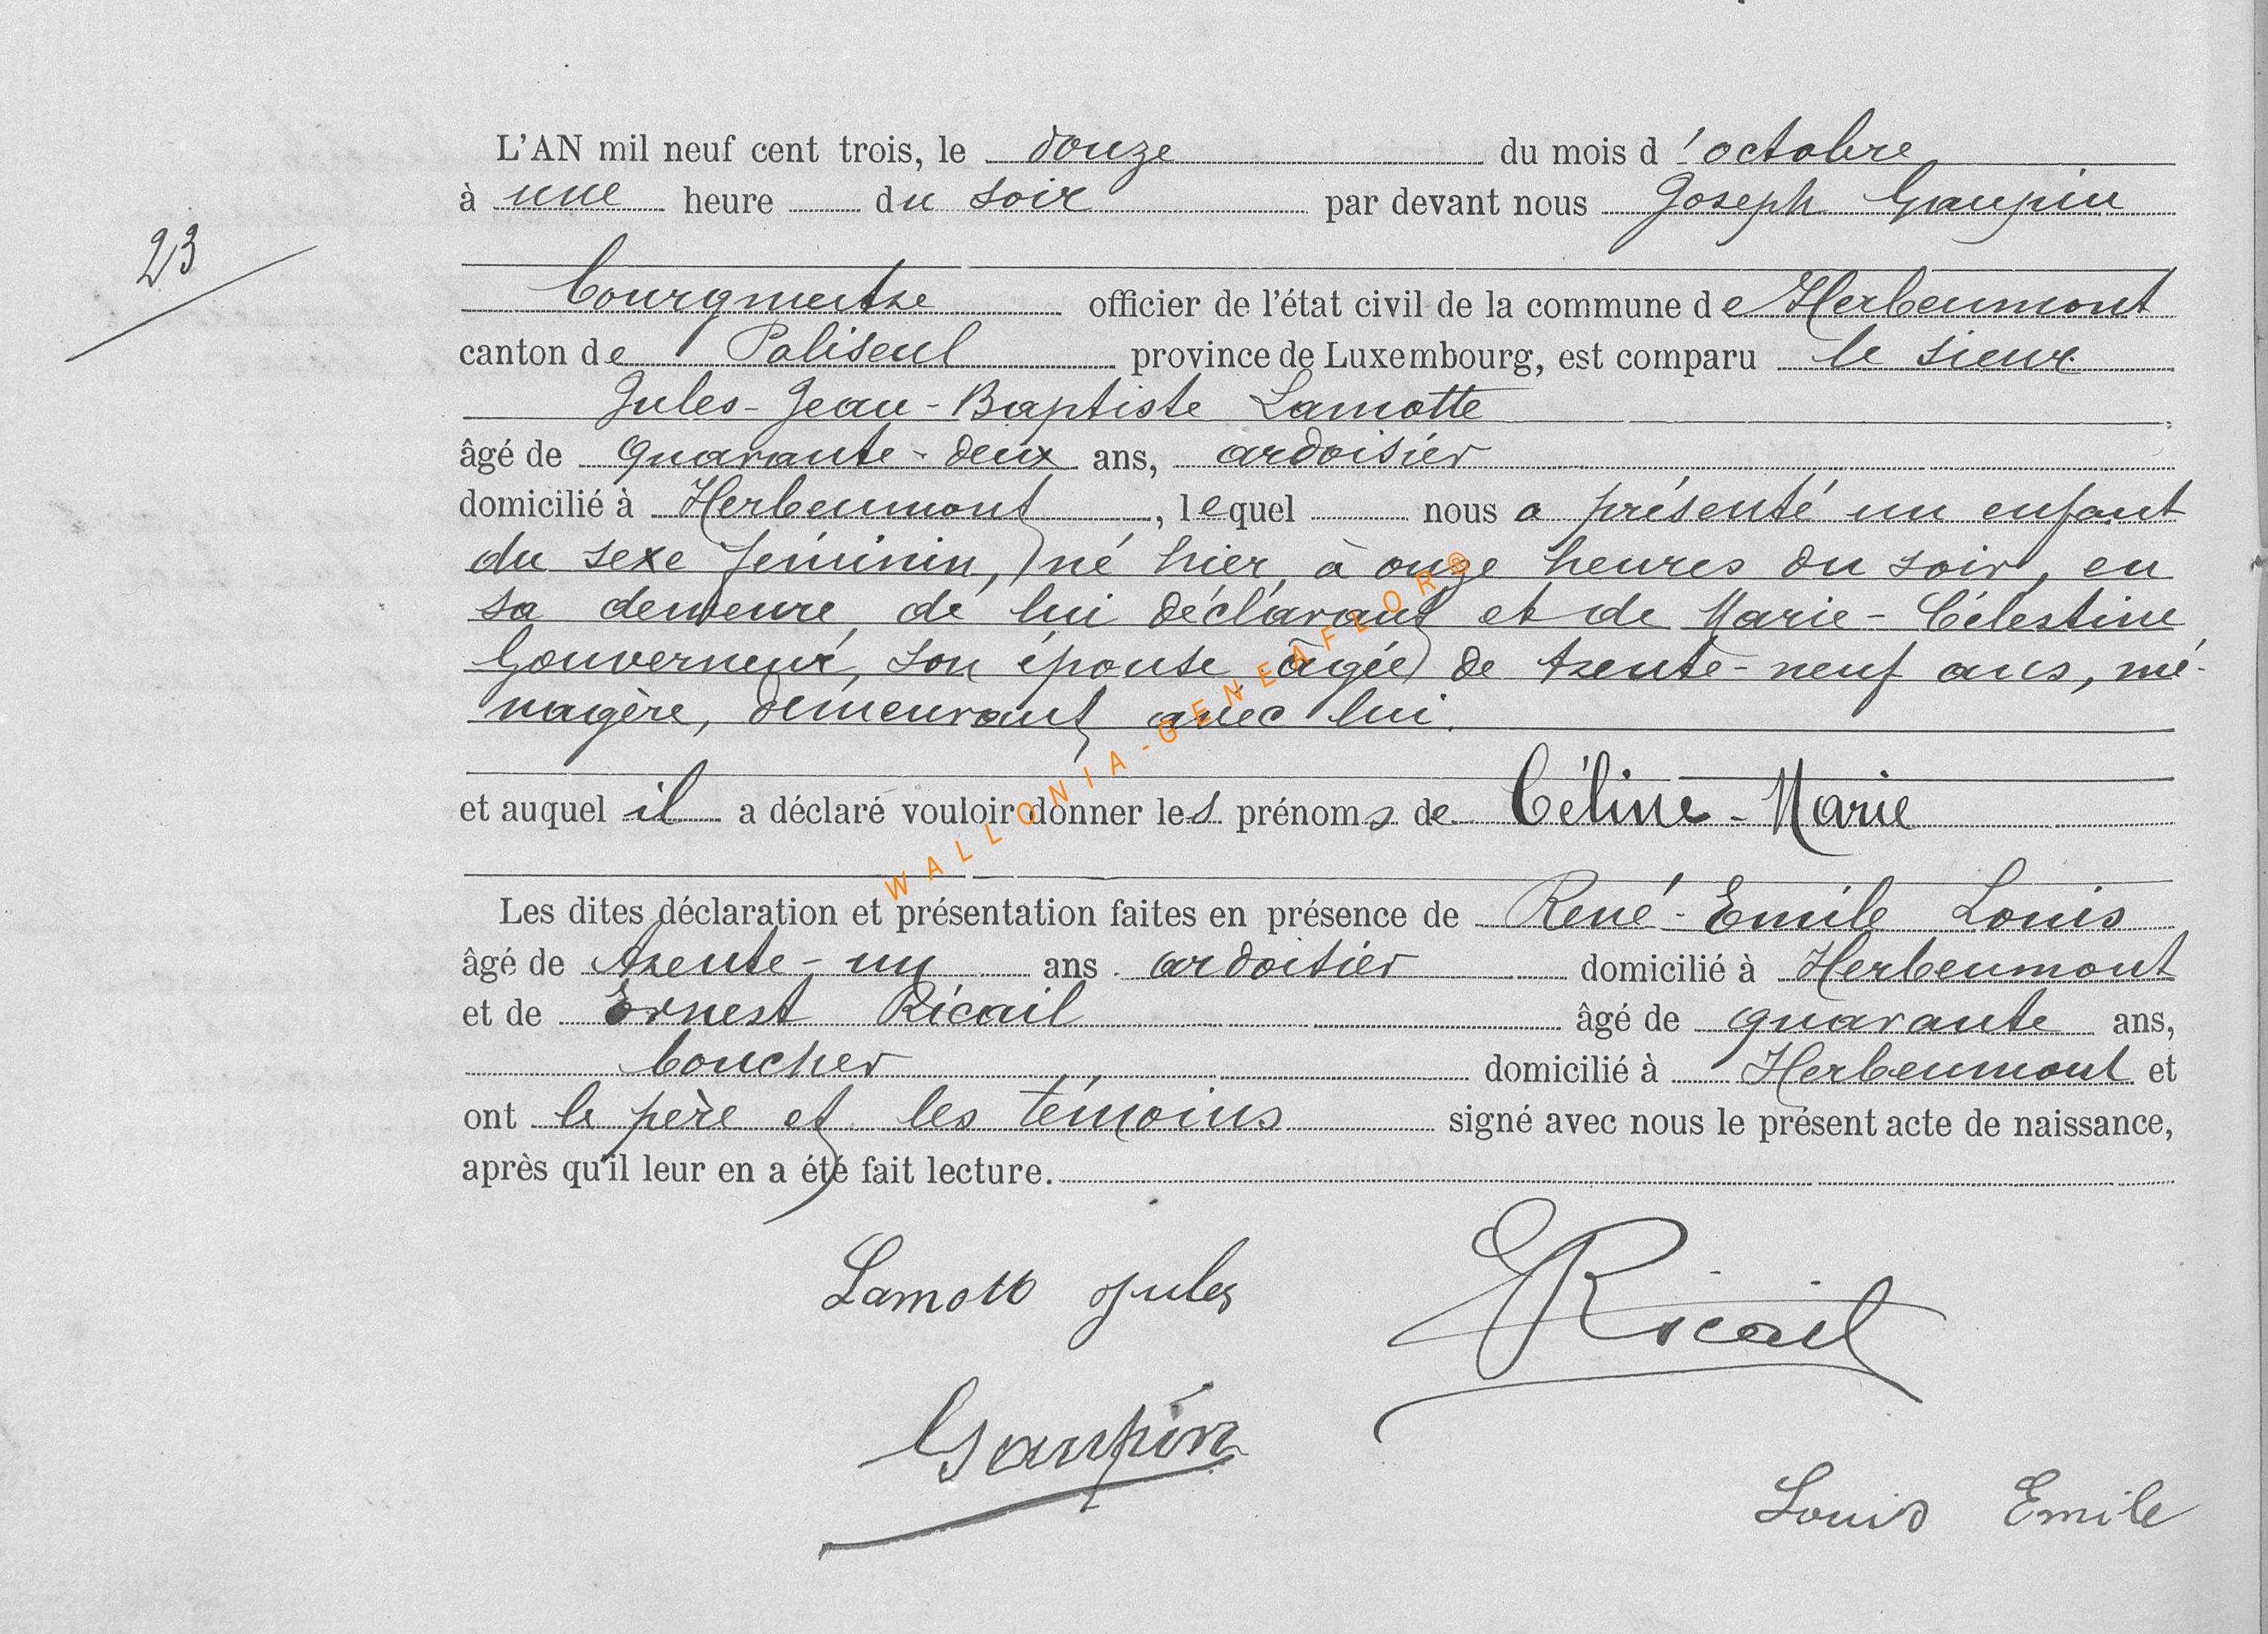 L'AN mil neuf cent trois, le douze du mois d'octobre
à une heure du soir par devant nous Joseph Gaupin
23
bourgmestre officier de l'état civil de la commune de Herbeumont
canton de Paliseul province de Luxembourg, est comparu le sieur
Jules-Jean-Baptiste Lamotte
âgé de quarante-deux ans, ardoisier
domicilié à Herbeumont, lequel nous a présenté un enfant
du sexe féminin, né hier, à onze heures du soir, en
sa demeure, de lui déclarant et de Marie-Célestine
Gouverneur, son épouse, âgée de trente-neuf ans, mé-
nagère, demeurant avec lui.
et auquel il a déclaré vouloir donner les prénoms de Céline-Marie
Les dites déclaration et présentation faites en présence de René-Emile Louis
âgé de trente-un ans ardoisier domicilié à Herbeumont
et de Ernest Ricail âgé de quarante ans,
boucher domicilié à Herbeumont et
ont le père et les témoins signé avec nous le présent acte de naissance,
après qu'il leur en a été fait lecture.
Lamott Jules
ERicail
Gaupin
Louis Emile
WALLONIA-GENEAFLOR®